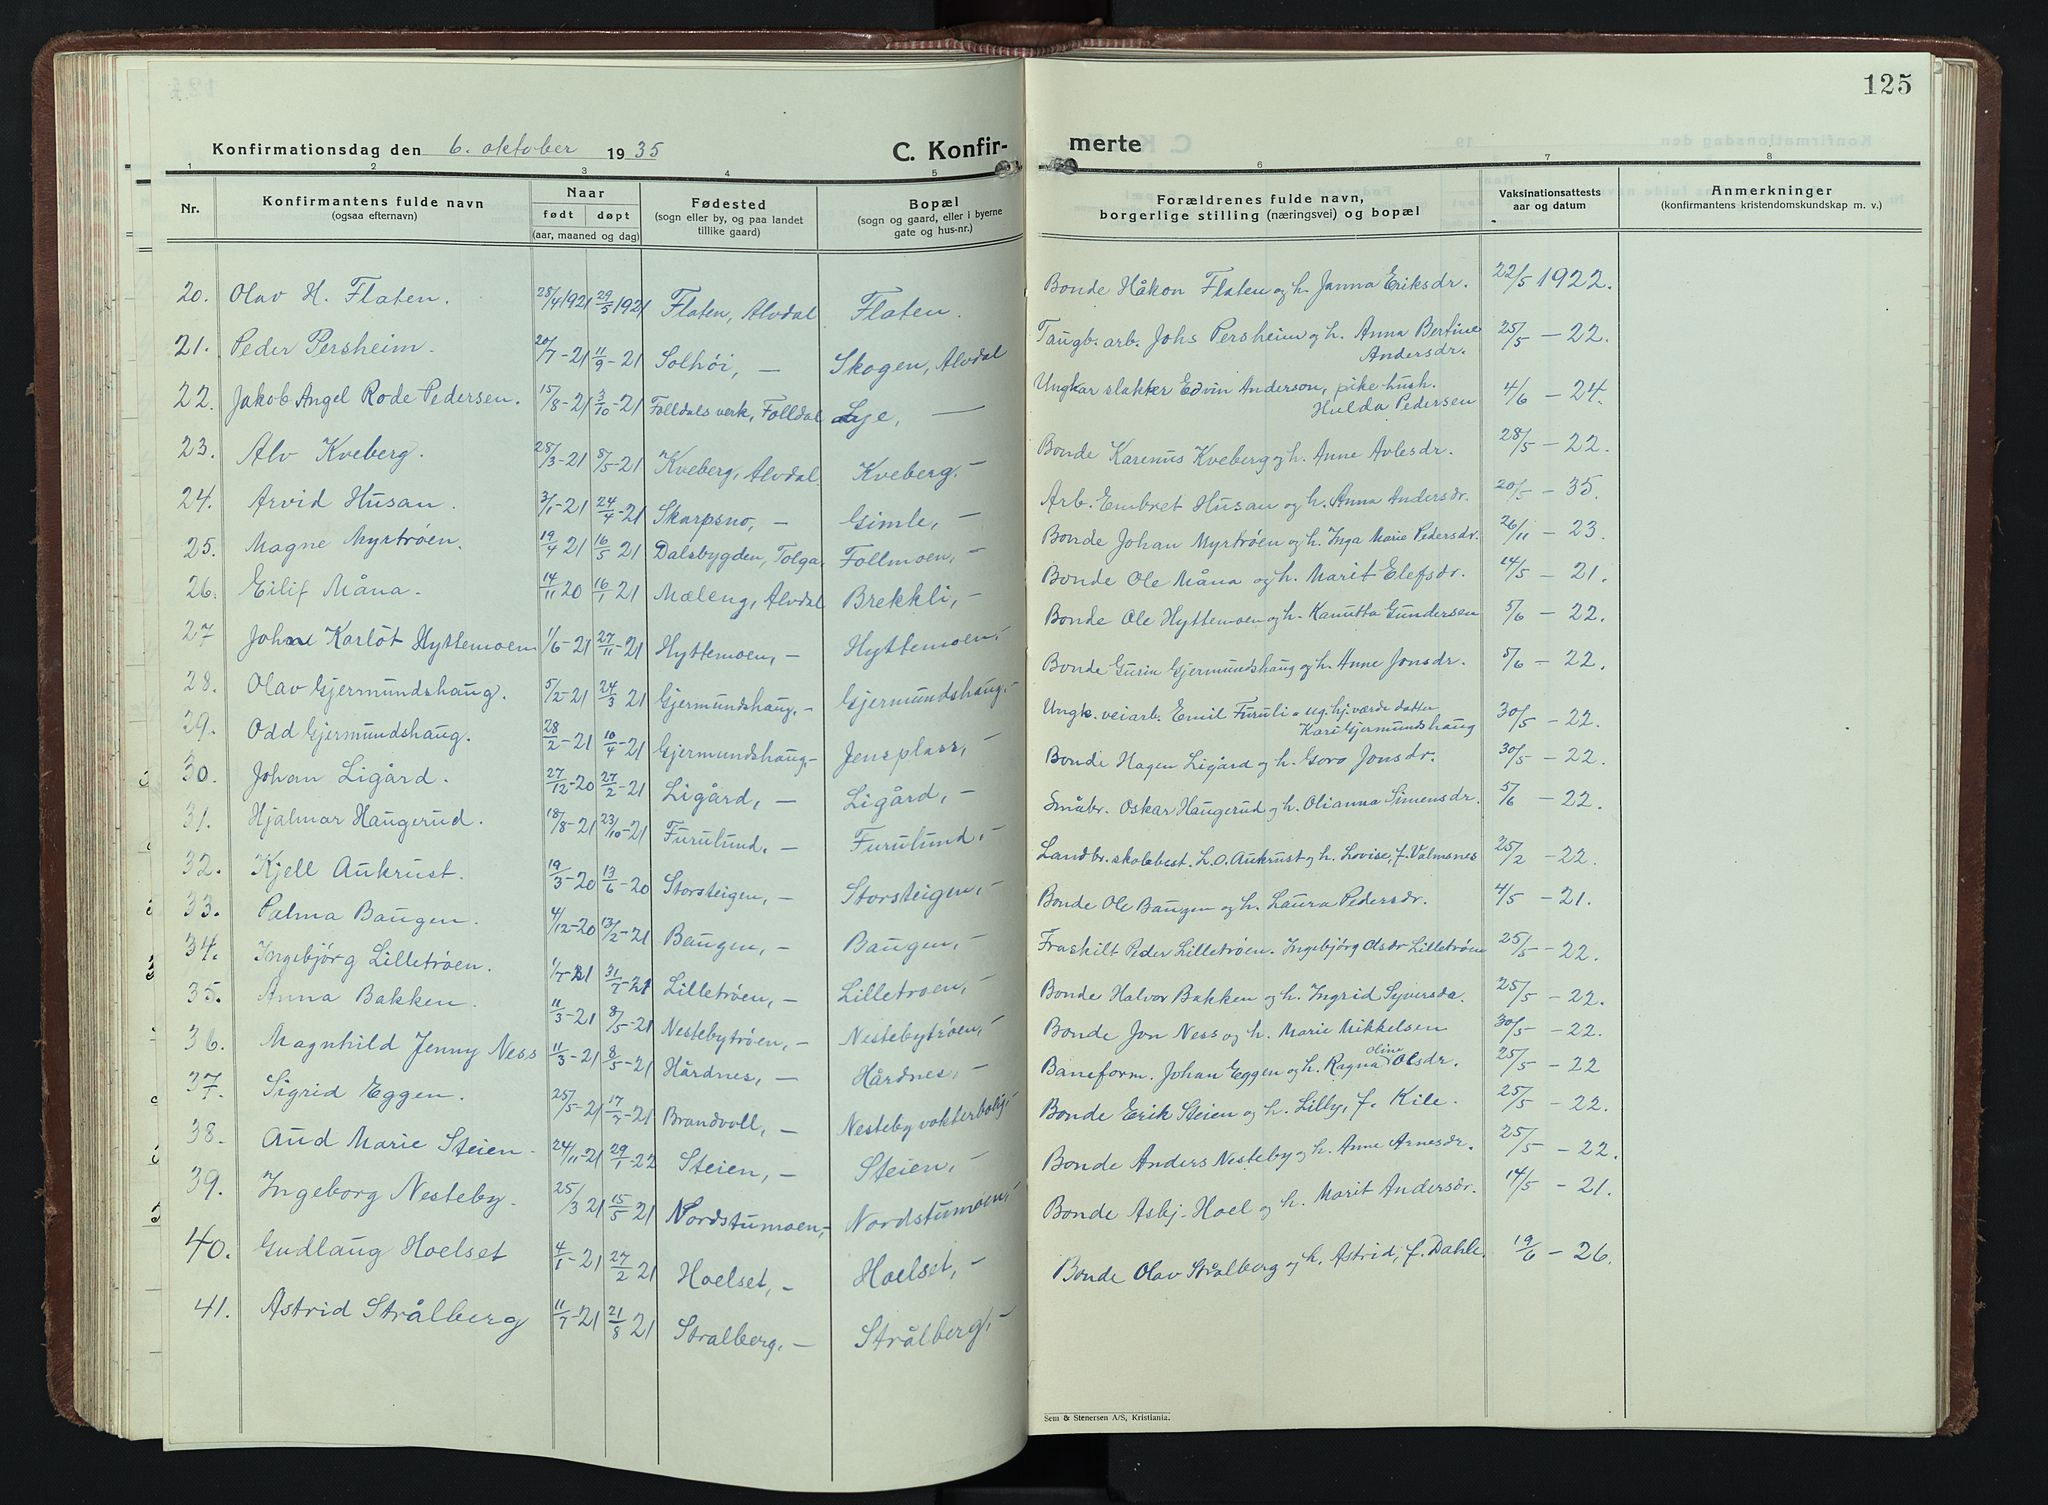 125
Konfirmationsdag den 6. oktober 1935 C. Konfir-
merte
1 2 3 4 5 6 7 8
Nr.
Konfirmantens fulde navn
(ogsaa efternavn)
Naar
født døpt
(aar, maaned og dag)
Fødested
(sogn eller by, og paa landet
tillike gaard)
Bopæl
(sogn og gaard, eller i byerne
gate og hus-nr.)
Forældrenes fulde navn,
borgerlige stilling (næringsvei) og bopæl
Vaksinationsattests
aar og datum
Anmerkninger
(konfirmantens kristendomskundskap m. v.)
20. Olav H. Flaten. 28/4 1921 29/5 1921 Flaten, Alvdal Flaten. Bonde Håkon Flaten og h. Janna Eriksdr. 22/5 1922.
21. Peder Persheim. 20/7-21 11/9-21 Solhøi, — Skogen, Alvdal Taugb. arb. Johs Persheim og h. Anna Bertine 25/5 - 22.
Andersdr.
22. Jakob Angel Rode Pedersen. 15/8-21 3/10-21 Folldals verk, Folldal Lye, — Ungkar slakter Edvin Anderson, pike hush. 4/6 - 24.
Hulda Pedersen
23. Alv Kveberg. 28/3-21 8/5-21 Kveberg, Alvdal Kveberg, - Bonde Karenus Kveberg og h. Anne Avlesdr. 28/5 - 22.
24. Arvid Husan. 3/1-21 24/4-21 Skarpsno, - Gimle, - Arb. Embret Husan og h. Anna Andersdr. 20/5 - 35.
25. Magne Myrtrøen. 19/4 21 16/5 21 Dalsbygden, Tolga. Follmoen, - Bonde Johan Myrtrøen og h. Inga Marie Pedersdr. 26/11 - 23.
26. Eilif Måna. 14/11 20 16/1 21 Mæleng, Alvdal Brekkli, - Bonde Ole Måna og h. Marit Elefsdr. 14/5 - 21.
27 Johne Karlot Hyttemoen 1/6-21 27/11-21 Hyttemoen, - Hyttemoen, - Bonde Ole Hyttemoen og h. Kanutta Gundersen 5/6 - 22.
28. Olav Gjermundshaug. 5/2-21 24/3 21 Gjermundshaug, - Gjermundshaug, - Bonde Gurin Gjermundshaug og h. Anne Jonsdr. 5/6 - 22.
29. Odd Gjermundshaug. 28/2-21 10/4-21 Gjermundshaug - Jensplass, - Ungk. veiarb. Emil Furuli og ug. hj. værde datter 30/5 - 22.
Kari Gjermundshaug
30. Johan Ligård. 27/12-20 27/2-21 Ligård, - Ligård, - Bonde Hagen Ligård og h. Goro Jonsdr. 30/5 - 22.
31. Hjalmar Haugerud. 18/8-21 23/10-21 Furulund, - Furulund, - Småbr. Oskar Haugerud og h. Olianna Simensdr. 5/6 - 22.
32. Kjell Aukrust. 19/3-20 13/6-20 Storsteigen, - Storsteigen, - Landbr. skolebest. L.O. Aukrust og h. Lovise, f. Valmsnes 25/2 - 22.
33. Palma Baugen. 4/12-20 13/2-21 Baugen, - Baugen, - Bonde Ole Baugen og h. Laura Pedersdr. 4/5 - 21.
34. Ingebjørg Lilletrøen. 1/7-21 31/7-21 Lilletrøen, - Lilletroen, - Fraskilt Peder Lilletrøen. Ingebjørg Olsdr Lilletrøen 25/5 - 22.
35. Anna Bakken. 11/3-21 8/5-21 Nestebytrøen, - Nestebytrøen, - Bonde Halvor Bakken og h. Ingrid Syversda. 25/5 - 22.
36. Magnhild Jenny Ness 11/3-21 8/5-21 Hårdnes, - Hårdnes, - Bonde Jon Ness og h. Marie Mikkelsen 30/5 - 22.
37. Sigrid Eggen. 25/5-21 17/7-21 Brandvoll, - Nesteby vokterbolig, - Baneform. Johan Eggen og h. Ragna Oline Olsdr. 25/5 - 22
38. Aud Marie Steien. 24/11-21 29/1-22 Steien, - Steien, - Bonde Erik Steien og h. Lilly, f. Kile. 25/5 - 22.
39. Ingeborg Nesteby. 25/3 21 15/5 21 Nordstumoen, - Nordstumoen, - Bonde Anders Nesteby og h. Anne Arnesdr. 25/5 - 22.
40. Gudlaug Hoelset 4/1-21 27/2 21 Hoelset, - Hoelset, - Bonde Asbj. Hoel og h. Marit Andersdr. 14/5 - 21.
41. Astrid Strålberg 11/7-21 21/8 21 Stralberg, - Strålberg, - Bonde Olav Strålberg og h. Astrid, f. Dahle. 19/6 - 26.
Sem & Stenersen A/S, Kristiania.